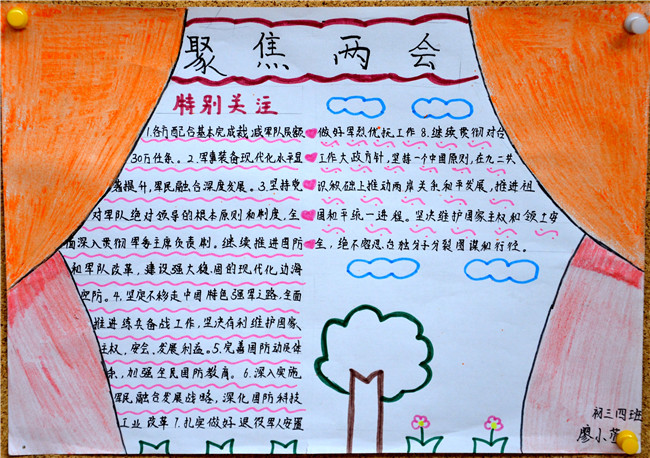 聚焦两会
特别关注
1.各方配合基本完成裁减军队员额
30万任务。2.军事装备现代化水平显
著提升,军民融合深度发展。3.坚持党
对军队绝对领导的根本原则和制度,全
面深入贯彻军委主席负责制。继续推进国防
和军队改革,建设强大稳固的现代化边海
空防。4.坚定不移走中国特色强军之路,全面
推进练兵备战工作,坚决有利维护国家
主权、安全、发展利益。5.完善国防动员体
系,加强全民国防教育。6.深入实施
军民融合发展战略,深化国防科技
工业改革7.扎实做好退役军人安置
做好军烈优抚工作8.继续贯彻对台
工作大政方针,坚持一个中国原则,在九二共
识础上推动两岸关系和平发展,推进祖
国和平统一进程。坚决维护国家主权和领土安
全,绝不容忍台独分子分裂图谋和行径。
初三四班
廖小萱